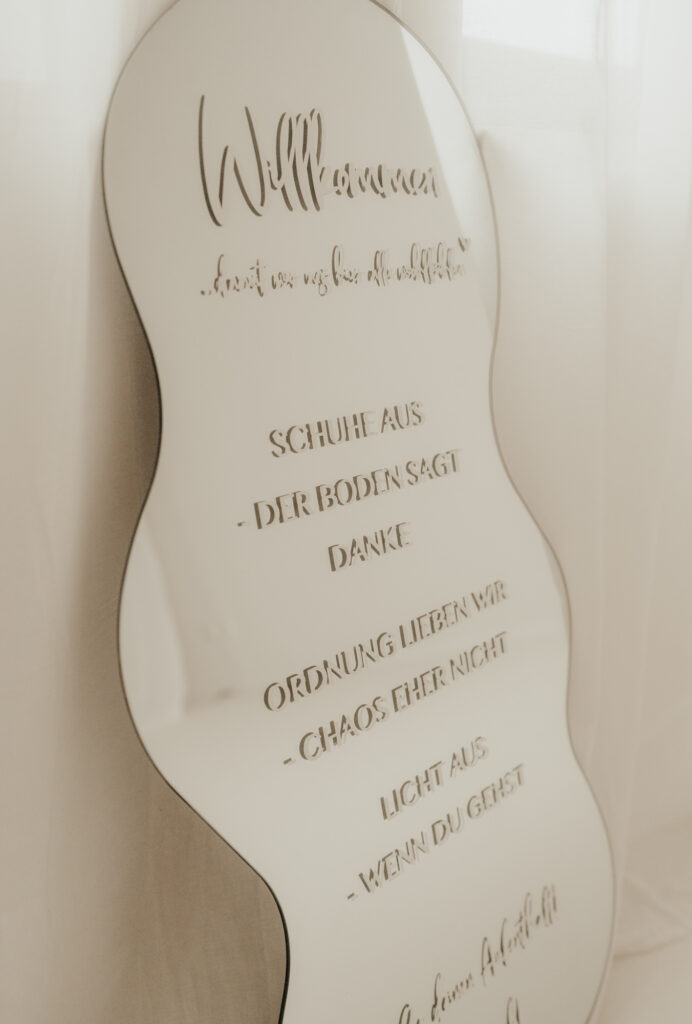 Willkommen
...damit wir uns hier alle wohlfühlen
SCHUHE AUS
- DER BODEN SAGT
DANKE
ORDNUNG LIEBEN WIR
- CHAOS EHER NICHT
LICHT AUS
- WENN DU GEHST
deinen Aufenthalt